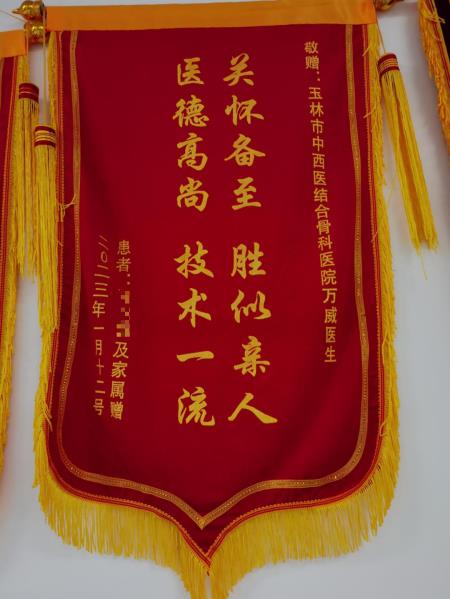 敬赠：玉林市中西医结合骨科医院万威医生
关怀备至 胜似亲人
医德高尚 技术一流
患者：及家属赠
二〇二三年一月十二号